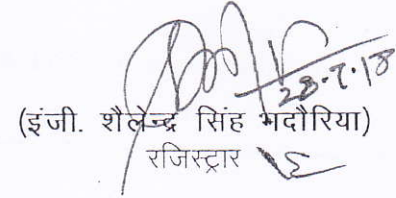 28-7-18
(इंजी. शैलेन्द्र सिंह भदौरिया)
रजिस्ट्रार